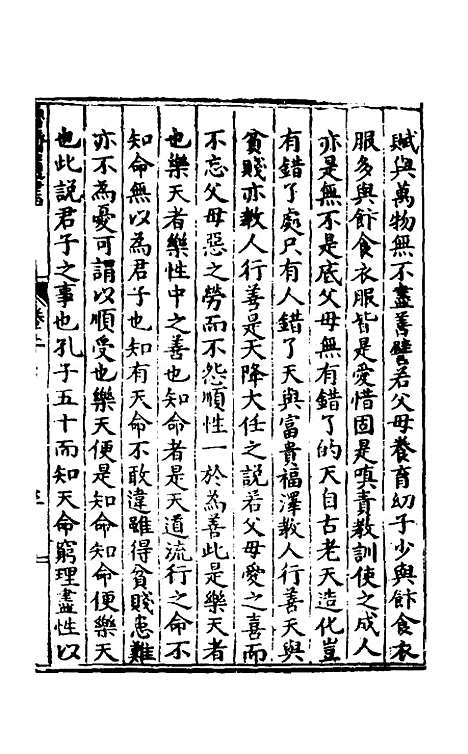 賦與萬物無不盡善譬若父母養育幼子少與飰食衣
服多與飰食衣服皆是愛惜固是嗔責教訓使之成人
亦是無不是底父母無有錯了的天自古老天造化豈
有錯了處只有人錯了天與富貴福澤教人行善天與
貧賤亦教人行善是天降大任之說若父母愛之喜而
不忘父母惡之勞而不怨順性一於為善此是樂天者
也樂天者樂性中之善也知命者是天道流行之命不
知命無以為君子也知有天命不敢違雖得貧賤患難
亦不為憂可謂以順受也樂天便是知命知命便樂天
也此說君子之事也孔子五十而知天命窮理盡性以